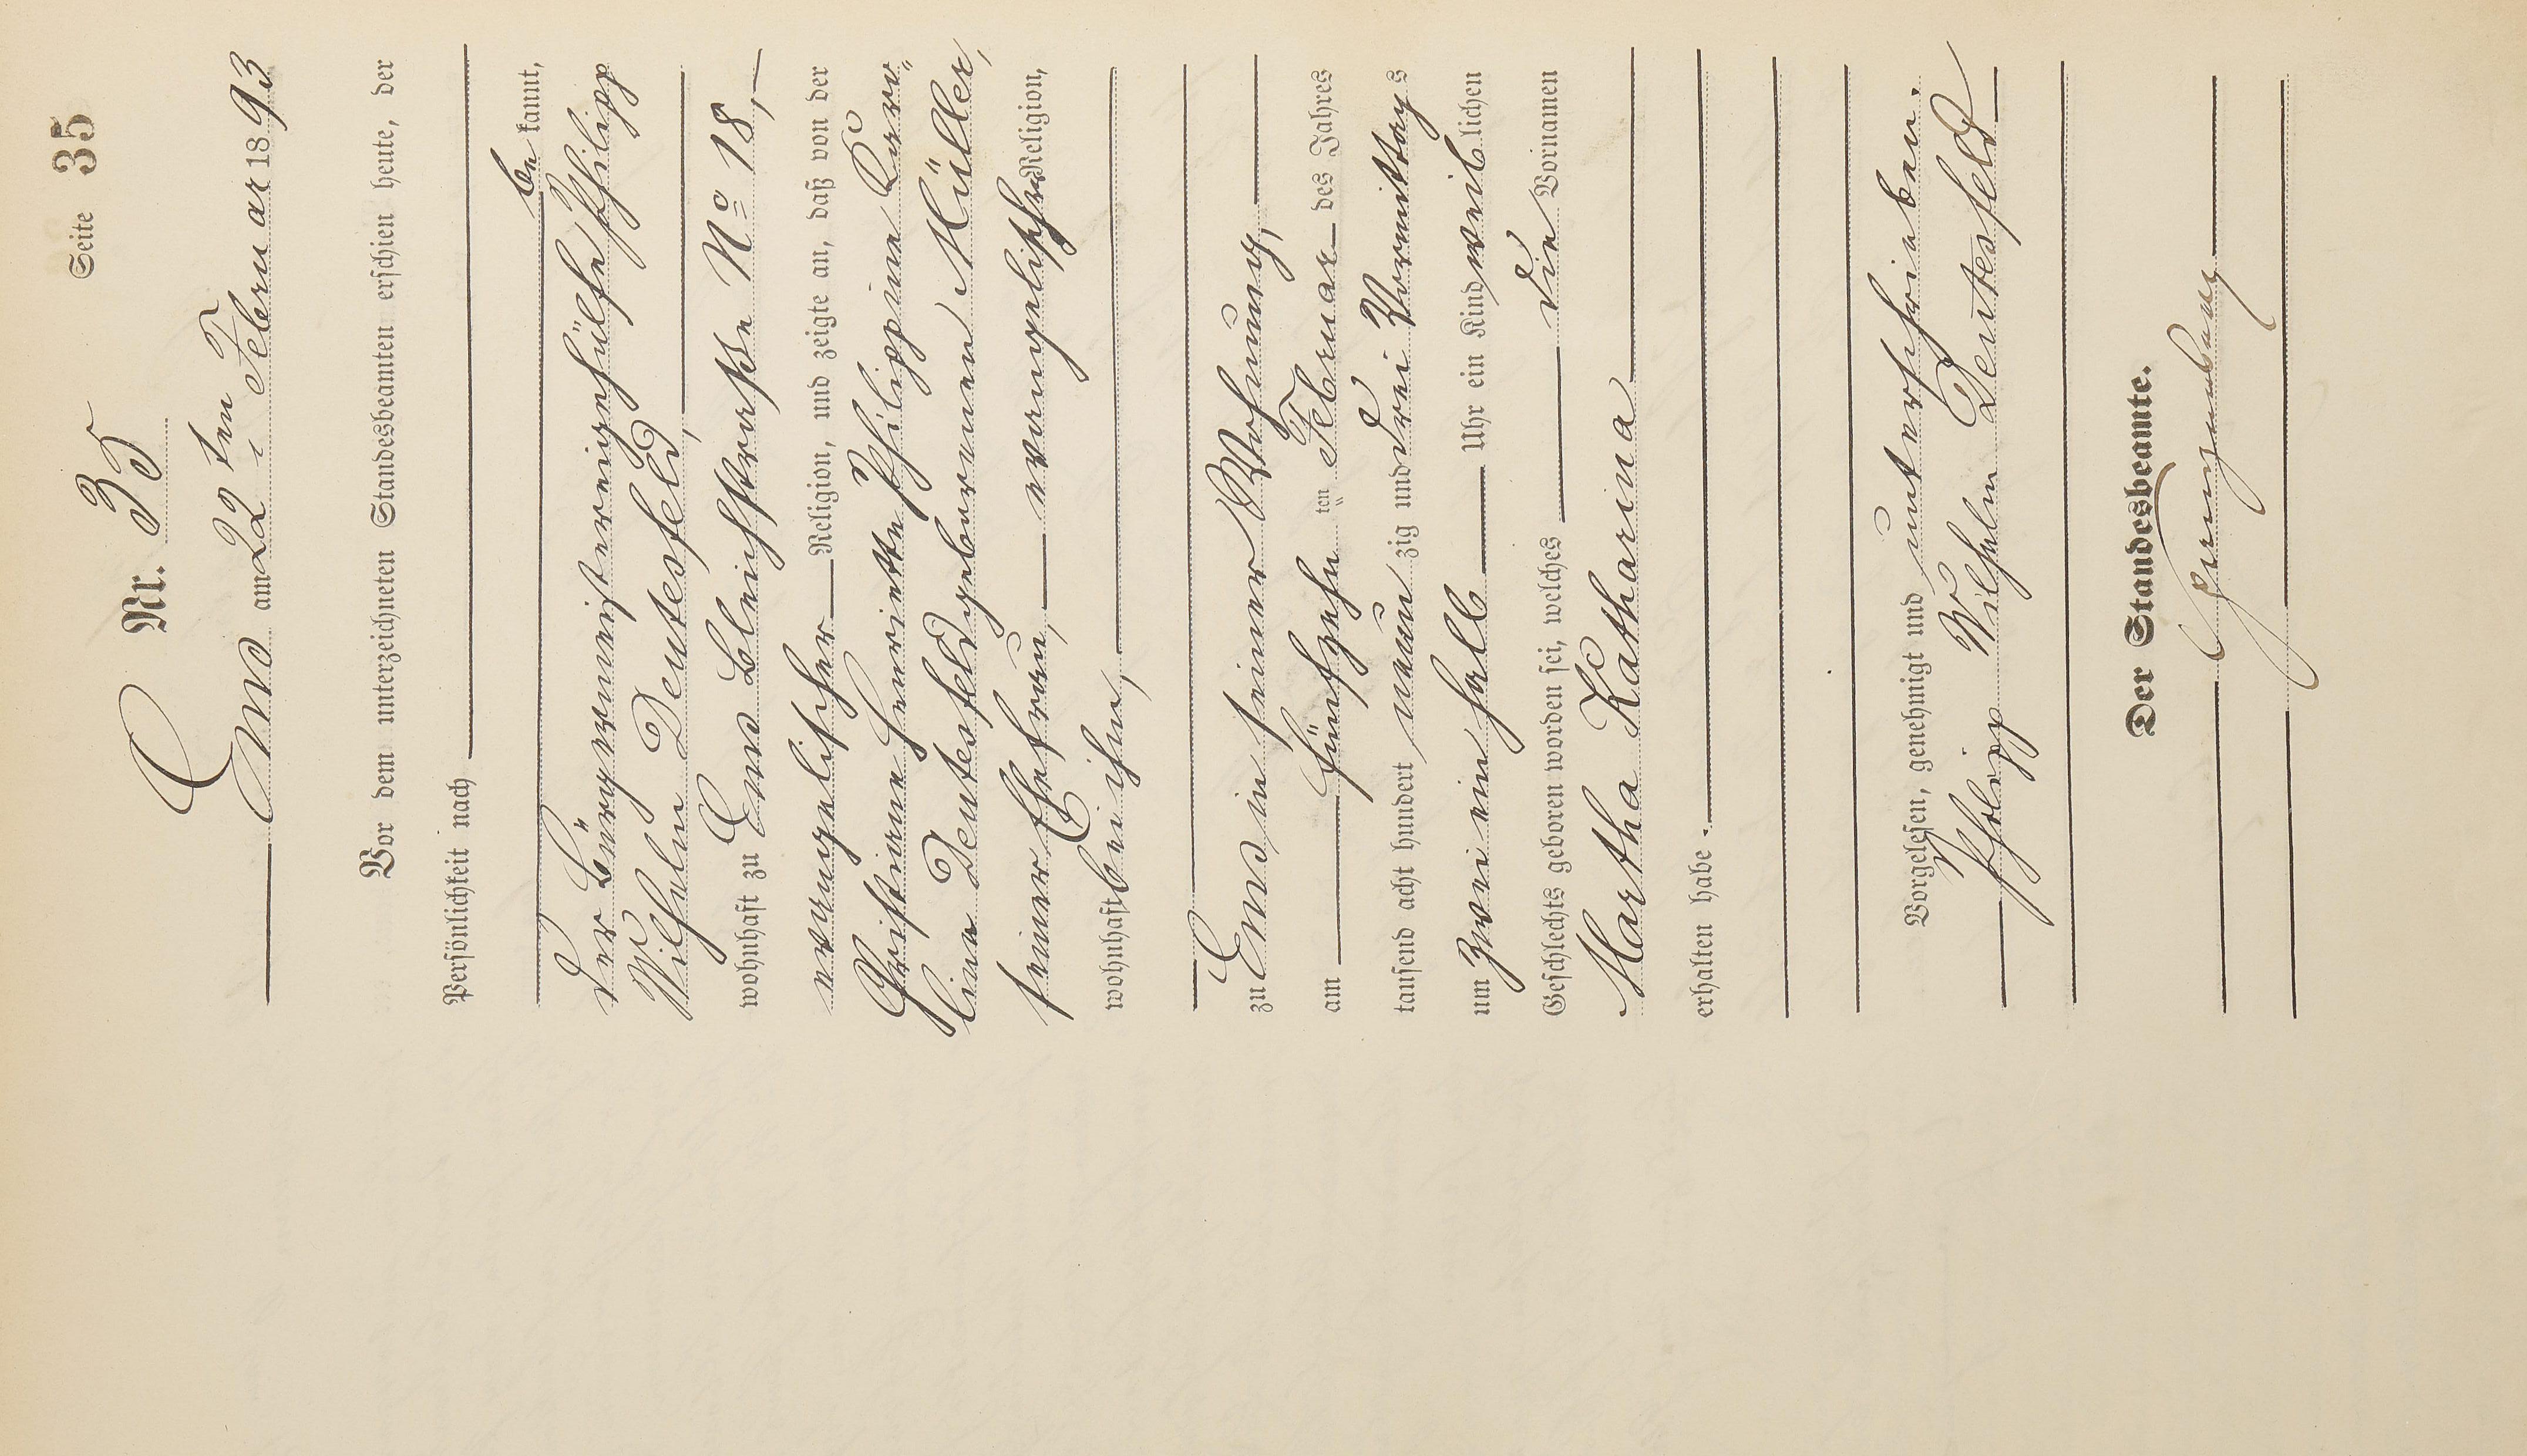 Seite 35
Nr. 35
Ems am 22ten Februar 1893
Vor dem unterzeichneten Standesbeamten erschien heute, der
Persönlichkeit nach
be kannt,
der Bürgermeistereigehülfe Philipp
Wilhelm Deutesfeld,
wohnhaft zu Ems Bleichstraße No 18,
evangelischer Religion, und zeigte an, daß von der
Christiane Henriette Philippine Karo-
line Deutesfeld geborenen Müller,
seiner Ehefrau, evangelischer Religion,
wohnhaft bei ihm,
zu Ems in seiner Wohnung,
am fünfzehn ten Februar des Jahres
tausend acht hundert neun zig und drei Vormittags
um zwei ein halb Uhr ein Kind weib lichen
Geschlechts geboren worden sei, welches die Vornamen
Martha Katharina
erhalten habe.
Vorgelesen, genehmigt und unterschrieben.
Philipp Wilhelm Deutesfeld
Der Standesbeamte.